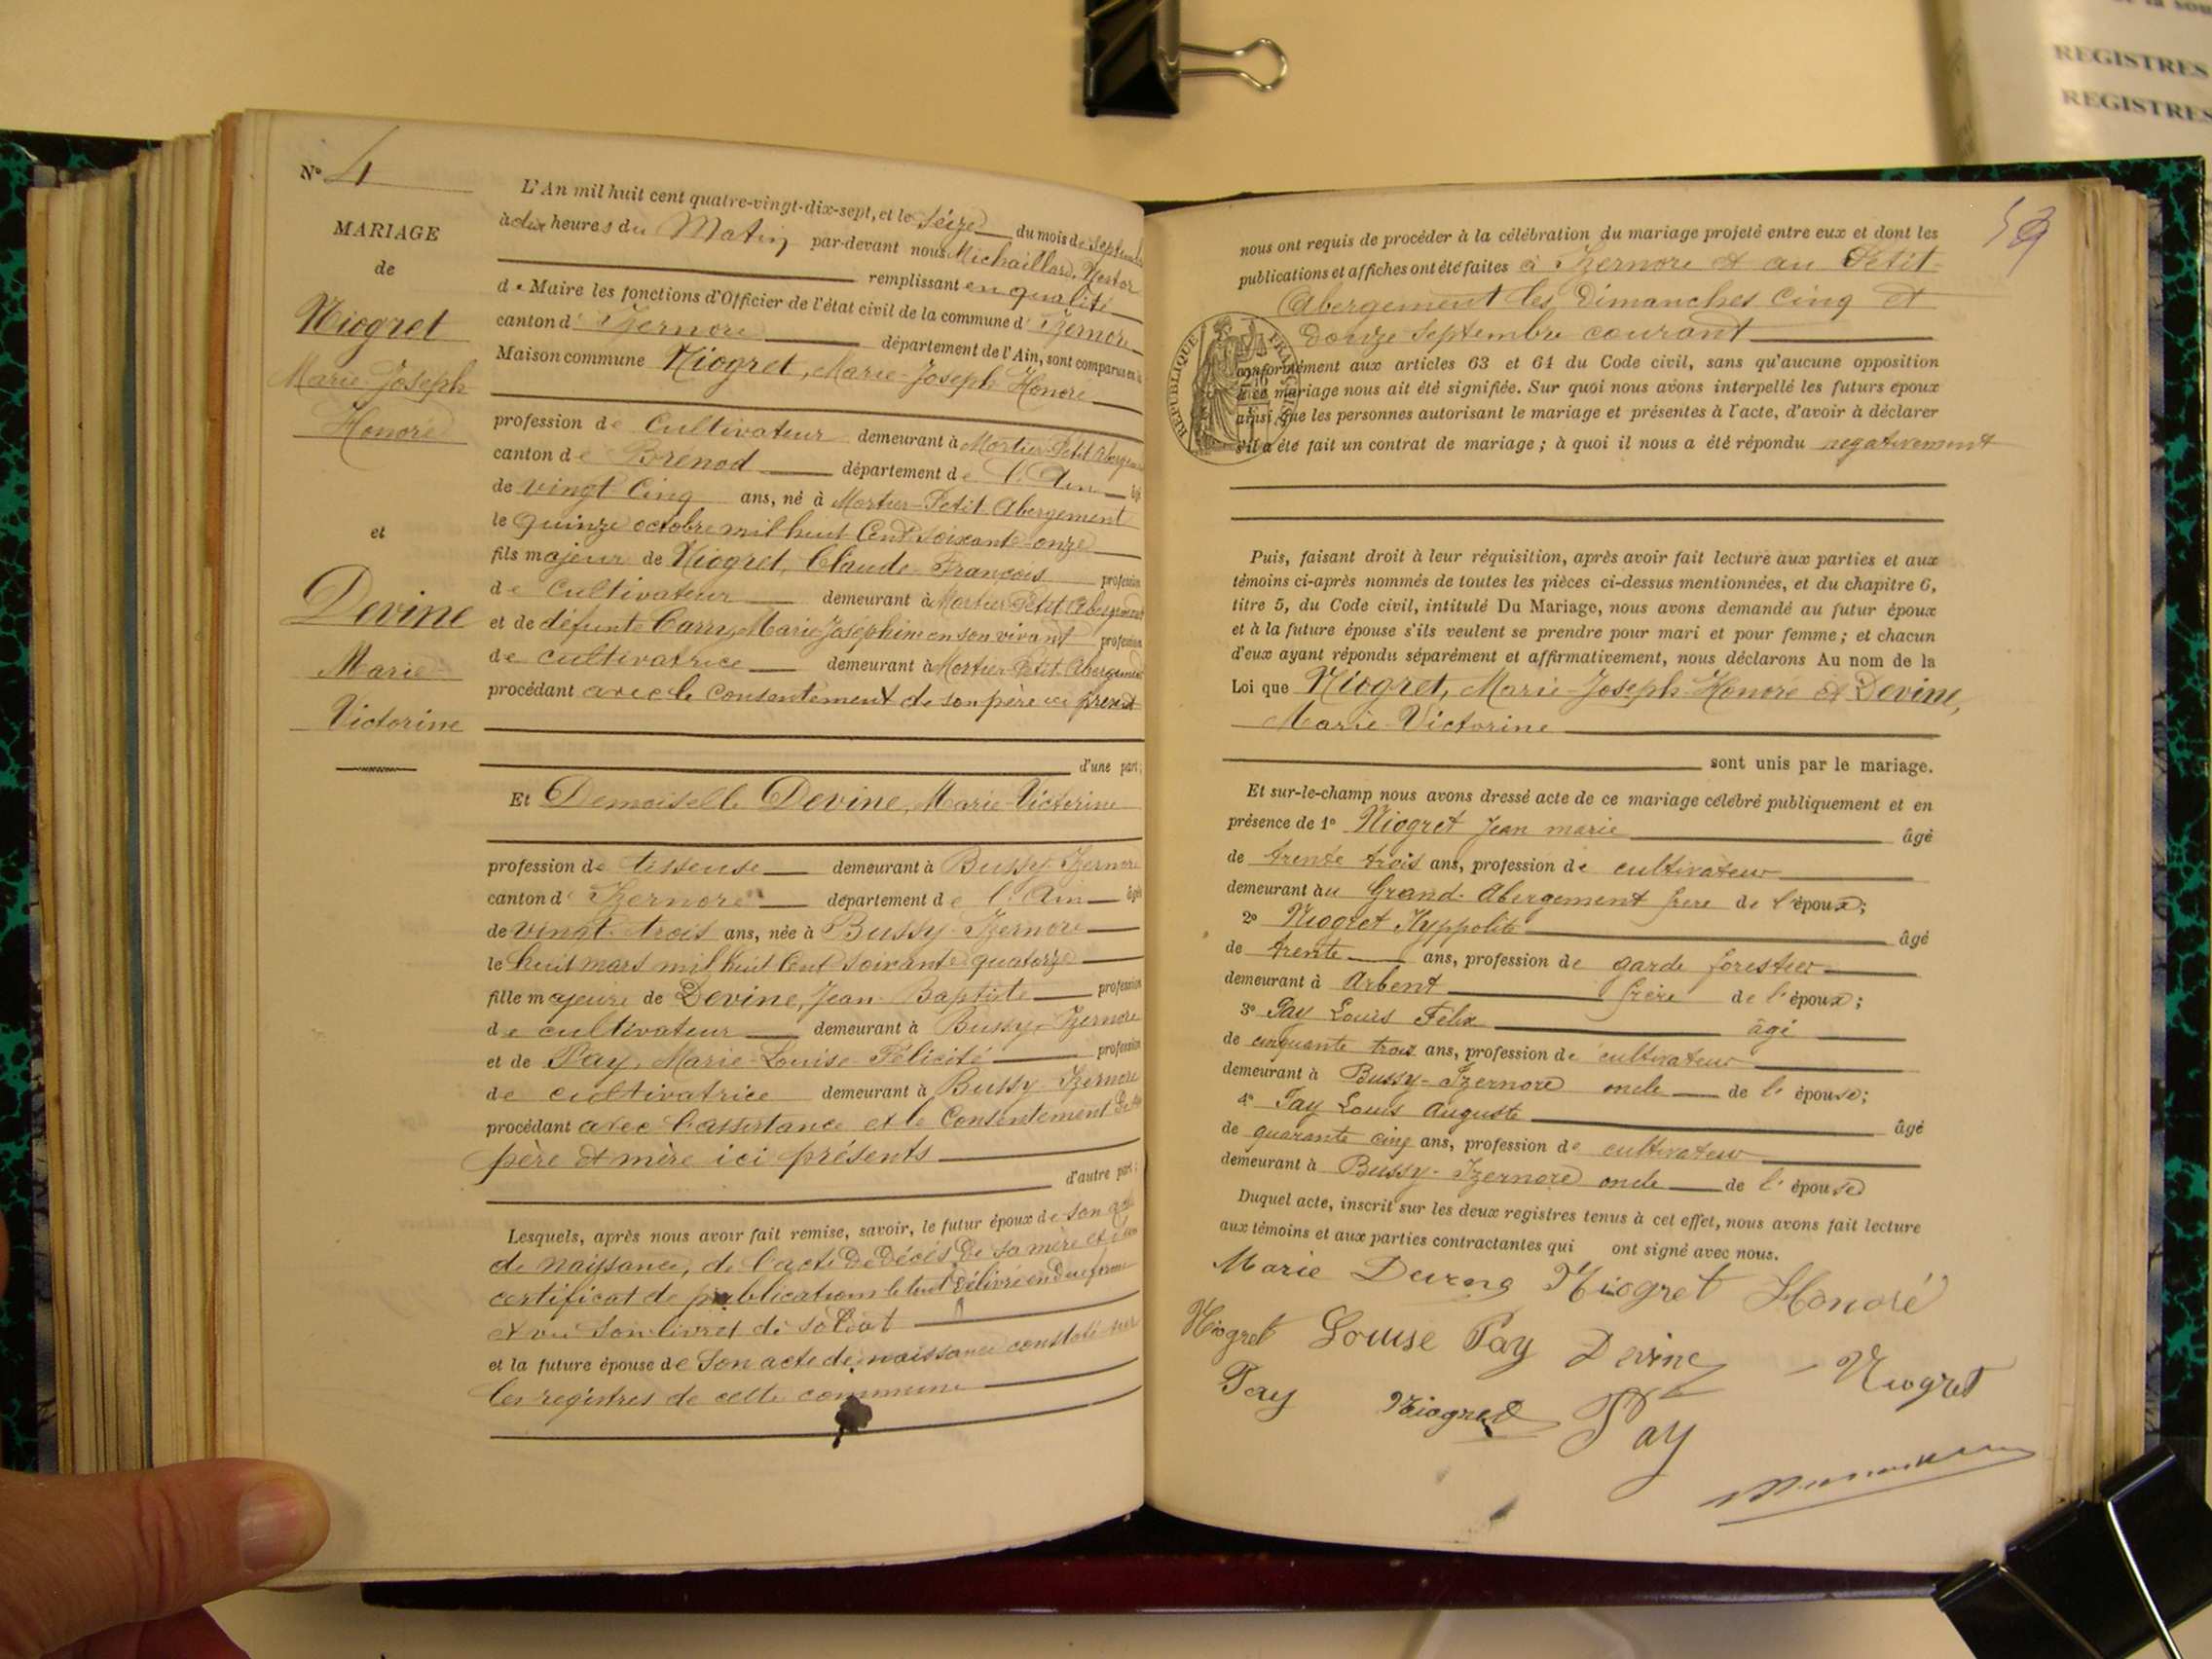 N° 4
MARIAGE
de
Niogret
Marie Joseph
Honoré
et
Devine
Marie
Victorine
L'An mil huit cent quatre-vingt-dix-sept, et le Seize du mois de Septembre
à dix heures du Matin par-devant nous Michaillard, Nestor
remplissant en qualité
de Maire les fonctions d'Officier de l'état civil de la commune d'Izernore
canton d'Izernore département de l'Ain, sont comparus en la
Maison commune Niogret, Marie-Joseph-Honoré
profession de Cultivateur demeurant à Mortier-Petit Abergement
canton de Brénod département de l'Ain âgé
de vingt-cinq ans, né à Mortier-Petit Abergement
le quinze octobre mil huit cent soixante-onze
fils majeur de Niogret, Claude-François profession
de cultivateur demeurant à Mortier Petit Abergement
et de défunte Carry, Marie Joséphine en son vivant profession
de cultivatrice demeurant à Mortier-Petit-Abergement
procédant avec le consentement de son père ici présent
d'une part;
Et Demoiselle Devine, Marie-Victorine
profession de tisseuse demeurant à Bussy-Izernore
canton d'Izernore département de l'Ain âgée
de vingt-trois ans, née à Bussy-Izernore
le huit mars mil huit cent soixante quatorze
fille majeure de Devine, Jean-Baptiste profession
de cultivateur demeurant à Bussy-Izernore
et de Pay, Marie-Louise-Félicité profession
de cultivatrice demeurant à Bussy-Izernore
procédant avec l'assistance et le consentement de ses
père et mère ici présents
d'autre part;
Lesquels, après nous avoir fait remise, savoir, le futur époux de son acte
de naissance, de l'acte de décès de sa mère et d'un
certificat de publications le tout délivré en due forme
et vu son livret de soldat
et la future épouse de son acte de naissance constaté sur
les registres de cette commune
59
nous ont requis de procéder à la célébration du mariage projeté entre eux et dont les
publications et affiches ont été faites à Izernore et au Petit-
Abergement les Dimanches cinq et
douze septembre courant
RÉPUBLIQUE FRANÇAISE
conformément aux articles 63 et 64 du Code civil, sans qu'aucune opposition
à ce mariage nous ait été signifiée. Sur quoi nous avons interpellé les futurs époux
ainsi que les personnes autorisant le mariage et présentes à l'acte, d'avoir à déclarer
s'il a été fait un contrat de mariage; à quoi il nous a été répondu negativement
Puis, faisant droit à leur réquisition, après avoir fait lecture aux parties et aux
témoins ci-après nommés de toutes les pièces ci-dessus mentionnées, et du chapitre 6,
titre 5, du Code civil, intitulé Du Mariage, nous avons demandé au futur époux
et à la future épouse s'ils veulent se prendre pour mari et pour femme; et chacun
d'eux ayant répondu séparément et affirmativement, nous déclarons Au nom de la
Loi que Niogret, Marie-Joseph-Honoré et Devine,
Marie-Victorine
sont unis par le mariage.
Et sur-le-champ nous avons dressé acte de ce mariage célébré publiquement et en
présence de 1° Niogret Jean marie âgé
de trente trois ans, profession de cultivateur
demeurant au Grand-Abergement frere de l'époux;
2° Niogret Hyppolite âgé
de trente ans, profession de garde forestier
demeurant à Arbent frère de l'époux;
3° Pay Louis Felix âgé
de cinquante trois ans, profession de cultivateur
demeurant à Bussy-Izernore oncle de l'épouse;
4° Pay Louis Auguste âgé
de quarante cinq ans, profession de cultivateur
demeurant à Bussy-Izernore oncle de l'épouse
Duquel acte, inscrit sur les deux registres tenus à cet effet, nous avons fait lecture
aux témoins et aux parties contractantes qui ont signé avec nous.
Marie Devine Niogret Honoré
Niogret Louise Pay Devine Niogret
Pay Niogret Pay
REGISTRES
REGISTRES